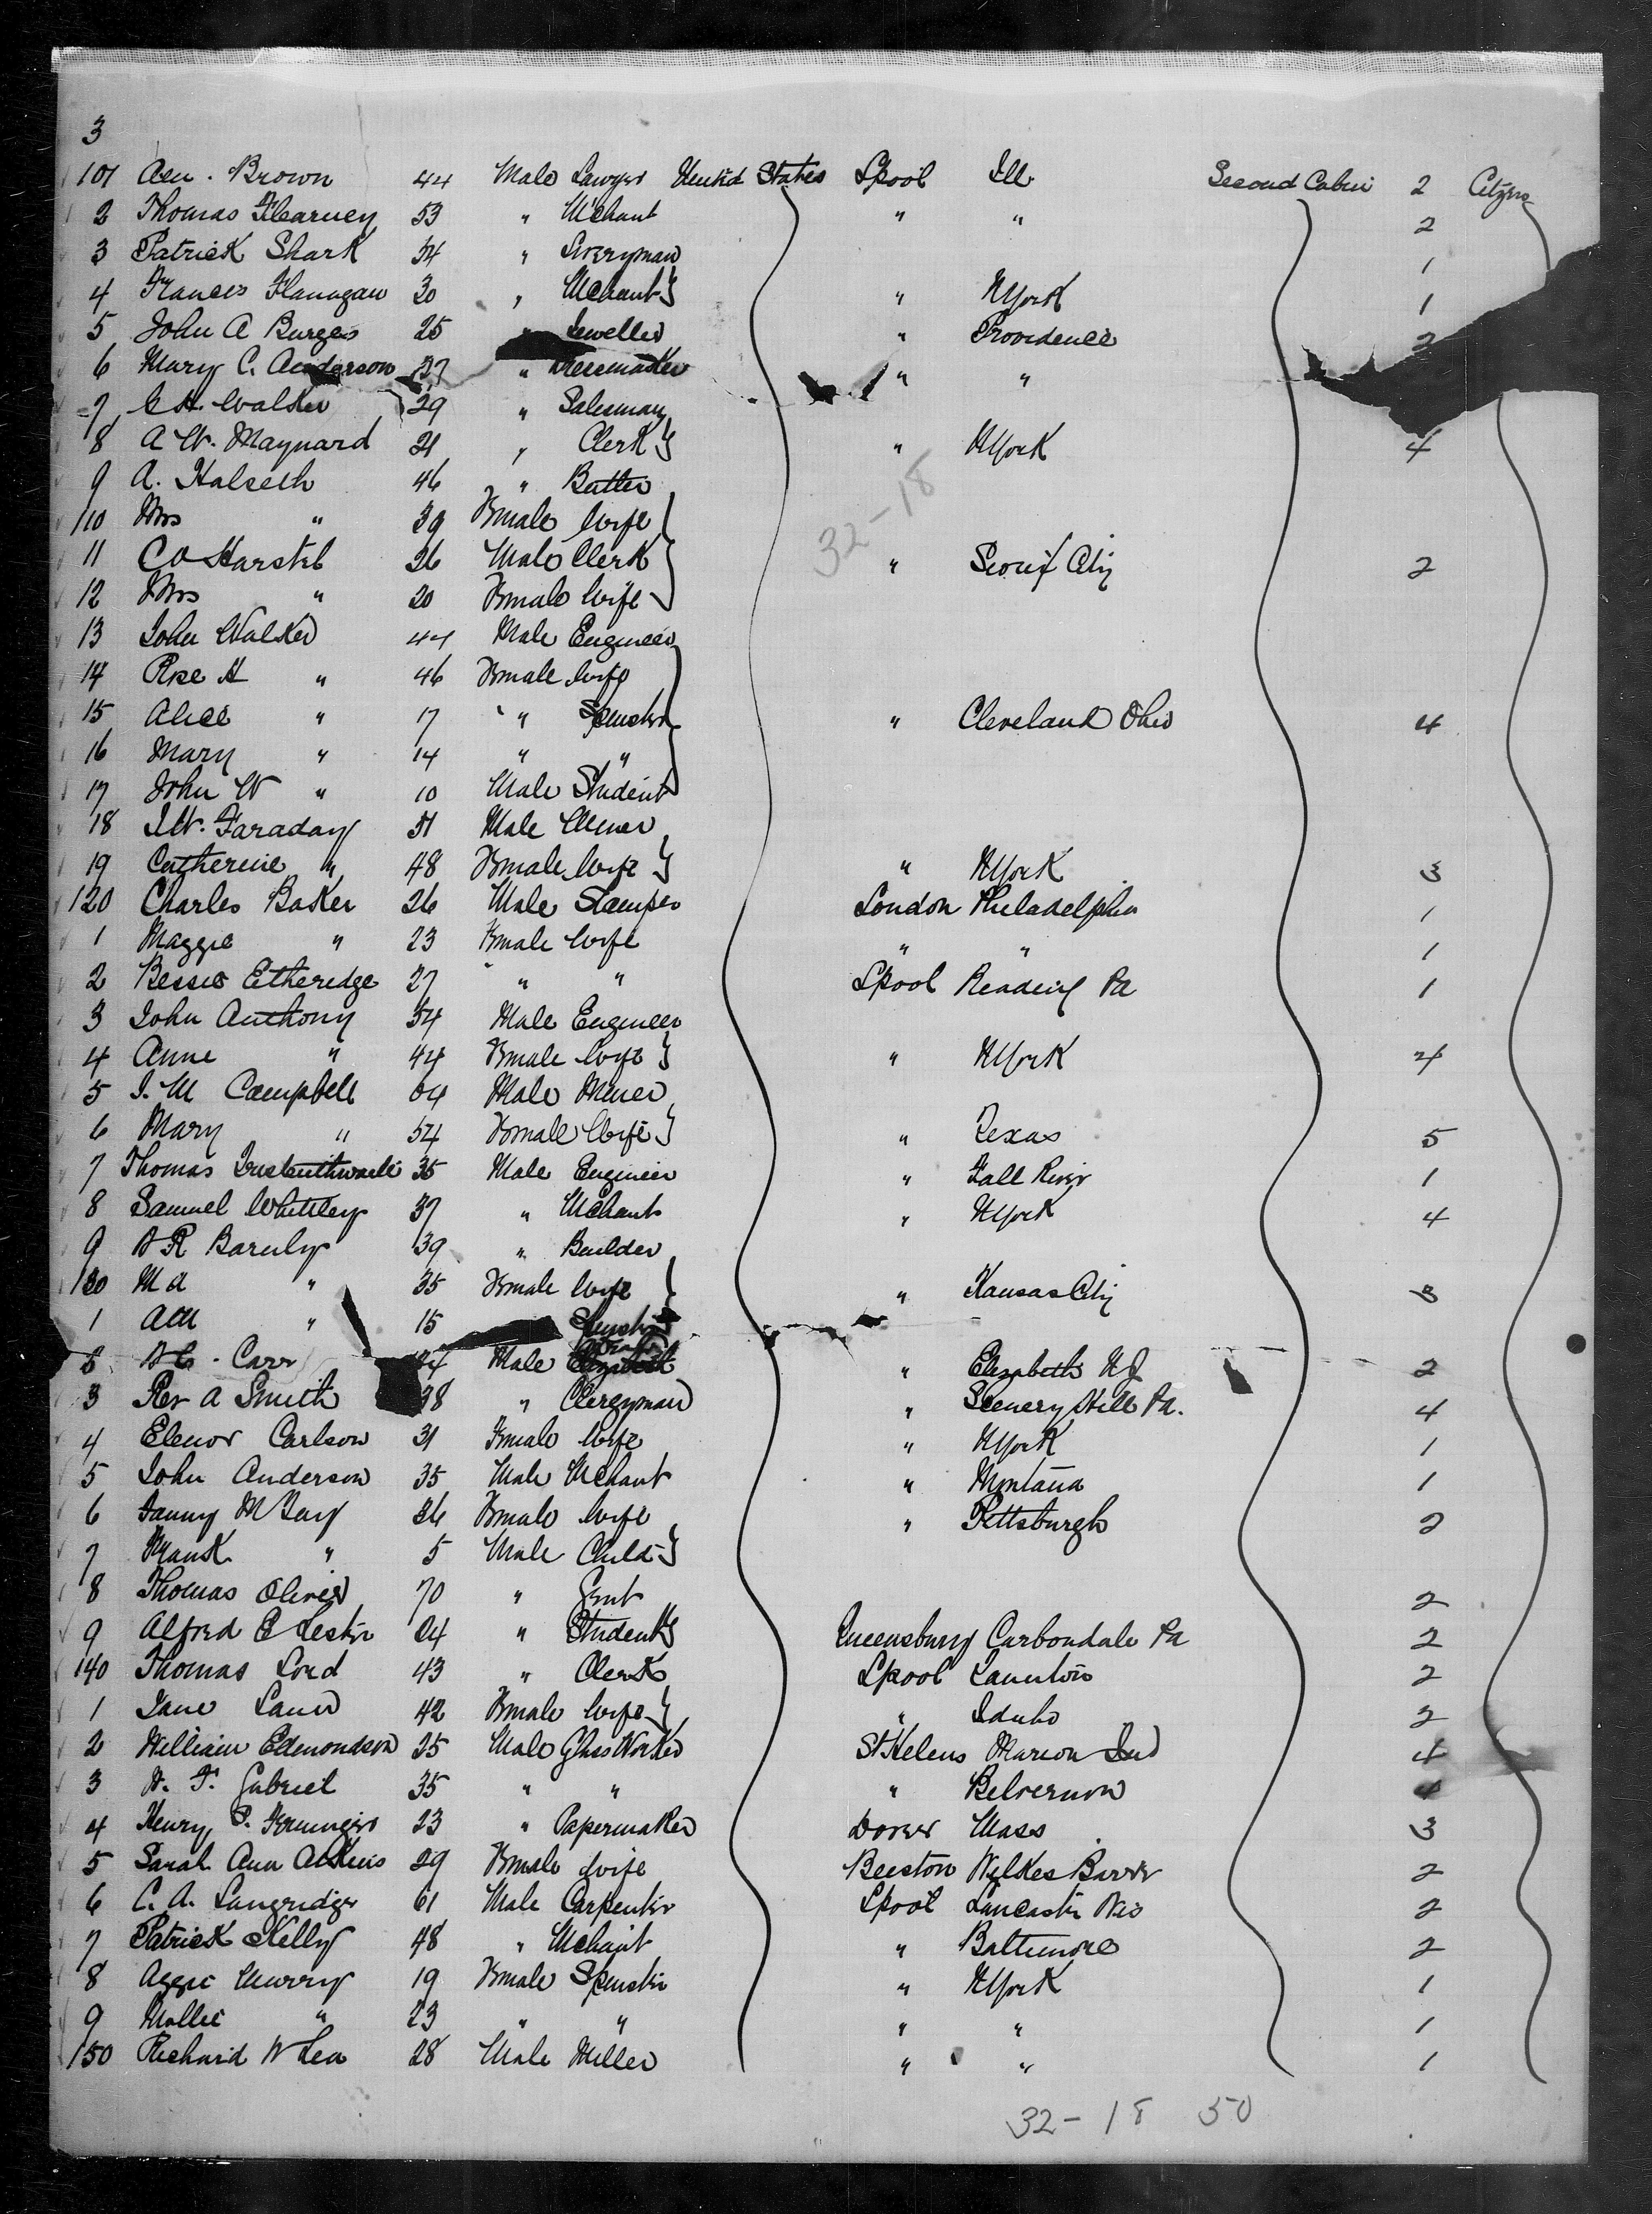 3
101 Alex. Brown 44 Male Lawyer United States Lpool Ill Second Cabin 2 Citizens
2 Thomas Kearney 53 " Mchant " " 2
3 Patrick Shark 34 " Liveryman 1
4 Frances Flanagan 30 " Mchant } " NYork 1
5 John A Burges 25 Jeweller " Providence 2
6 Mary C. Anderson 37 " Dressmaker " "
7 Walker 29 " Salesman
8 A W. Maynard 21 " Clerk } " NYork 4
9 A. Halseth 46 " Butler
110 Mrs " 39 Female Wife
11 C O 26 Male Clerk " Sioux City 2
12 Mrs " 20 Female Wife
13 John Walker 44 Male Engineer
14 H " 46 Female Wife
15 Alice " 17 " Spinster " Cleveland Ohio 4
16 Mary " 14 " "
17 John W " 10 Male Student
18 Faraday 51 Male Miner
19 Catherine " 48 Female Wife } " NYork 3
120 Charles Baker 26 Male Stamper London Philadelphia 1
1 Maggie " 23 Female Wife " " 1
2 Bessie Etheredge 27 " " Lpool Reading Pa 1
3 John Anthony 54 Male Engineer
4 Anne " 44 Female Wife } " NYork 4
5 J. M Campbell 64 Male Miner
6 Mary " 54 Female Wife } " Texas 5
7 Thomas 35 Male Engineer " Fall River 1
8 Samuel Whittley 37 " Mchant " NYork 4
9 R 39 " Builder
130 M A " 35 Female Wife " Kansas City 3
1 " 15 Spinster
2 Carr Male " Elizabeth N J 2
3 Rev A Smith 38 " Clergyman " Scenery Hill Pa. 4
4 Elenor Carlson 31 Female Wife " NYork 1
5 John Anderson 35 Male Mchant " Montana 1
6 Fanny 26 Female Wife " Pittsburgh 2
7 Frank " 5 Male Child }
8 Thomas Oliver 70 " Gent 2
9 Alfred E Lester 24 " Student } Queensbury Carbondale Pa 2
140 Thomas Lord 43 " Clerk Lpool Taunton 2
1 Jane 42 Female Wife } " Idaho 2
2 William Edmondson 25 Male Glass Worker St Helens Marion Ind 4
3 Gabriel 35 " " " Belvernon 4
4 Henry P. 23 " Papermaker Dover Mass 3
5 Sarah Ann Atkins 29 Female Wife Beeston Wilkes Barre 2
6 C. A. Langridge 61 Male Carpenter Lpool Lancaster 2
7 Patrick Kelly 48 " Mchant " Baltimore 2
8 Aggie Murry 19 Female Spinster " NYork 1
9 Mollie " 23 " " " " 1
150 Richard W Lea 28 Male Miller " " 1
32-18
32-18 50